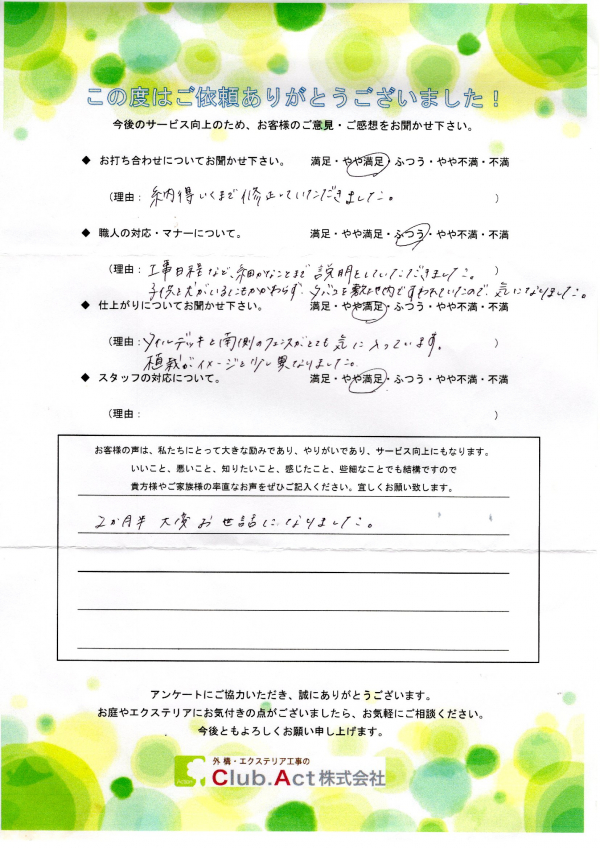 この度はご依頼ありがとうございました！
今後のサービス向上のため、お客様のご意見・ご感想をお聞かせ下さい。
◆ お打ち合わせについてお聞かせ下さい。 満足・やや満足・ふつう・やや不満・不満
（理由： 納得いくまで修正していただきました。 ）
◆ 職人の対応・マナーについて。 満足・やや満足・ふつう・やや不満・不満
（理由： 工事日程など、細かなことまで説明をしていただきました。 ）
子供と犬がいるにもかかわらず、タバコを敷地内ですわれていたので、気になりました。
◆ 仕上がりについてお聞かせ下さい。 満足・やや満足・ふつう・やや不満・不満
（理由： タイルデッキと南側のフェンスがとても気に入っています。 ）
植栽がイメージと少し異なりました。
◆ スタッフの対応について。 満足・やや満足・ふつう・やや不満・不満
（理由： ）
お客様の声は、私たちにとって大きな励みであり、やりがいであり、サービス向上にもなります。
いいこと、悪いこと、知りたいこと、感じたこと、些細なことでも結構ですので
貴方様やご家族様の率直なお声をぜひご記入ください。宜しくお願い致します。
2か月半 大変お世話になりました。
アンケートにご協力いただき、誠にありがとうございます。
お庭やエクステリアにお気付きの点がございましたら、お気軽にご相談ください。
今後ともよろしくお願い申し上げます。
外構・エクステリア工事の
Club.Act株式会社